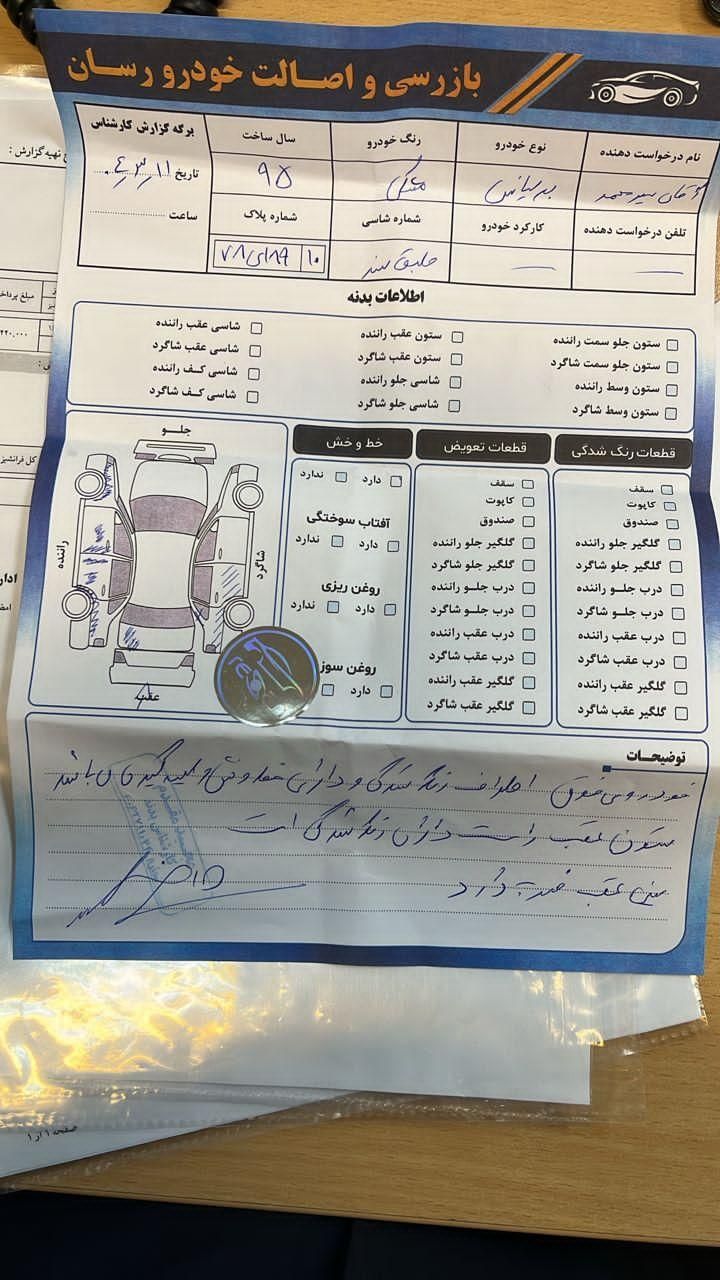 بازرسی و اصالت خودرو رسان
نام درخواست دهنده
نوع خودرو
رنگ خودرو
سال ساخت
برگه گزارش کارشناس
آقای
مشکی
۹۵
تاریخ ۰۴/۳/۱۱
تلفن درخواست دهنده
کارکرد خودرو
شماره شاسی
شماره پلاک
ساعت
—
—
طبق سند
۱۰
اطلاعات بدنه
ستون جلو سمت راننده
ستون عقب راننده
شاسی عقب راننده
ستون جلو سمت شاگرد
ستون عقب شاگرد
شاسی عقب شاگرد
ستون وسط راننده
شاسی جلو راننده
شاسی کف راننده
ستون وسط شاگرد
شاسی جلو شاگرد
شاسی کف شاگرد
قطعات رنگ شدگی
سقف
کاپوت
صندوق
گلگیر جلو راننده
گلگیر جلو شاگرد
درب جلو راننده
درب جلو شاگرد
درب عقب راننده
درب عقب شاگرد
گلگیر عقب راننده
گلگیر عقب شاگرد
قطعات تعویض
سقف
کاپوت
صندوق
گلگیر جلو راننده
گلگیر جلو شاگرد
درب جلو راننده
درب جلو شاگرد
درب عقب راننده
درب عقب شاگرد
گلگیر عقب راننده
گلگیر عقب شاگرد
خط و خش
دارد ندارد
آفتاب سوختگی
دارد ندارد
روغن ریزی
دارد ندارد
روغن سوز
دارد
جلو
راننده
شاگرد
عقب
توضیحات
خودروی فوق اطراف رنگ شدگی و دارای خط و خش و لیسه گیری می باشد
ستون عقب راست دارای رنگ شدگی است
سینی عقب ضربه دارد
تهیه گزارش :
مبلغ پرداخ
کل فرانشیز
صفحه ۱ از ۱